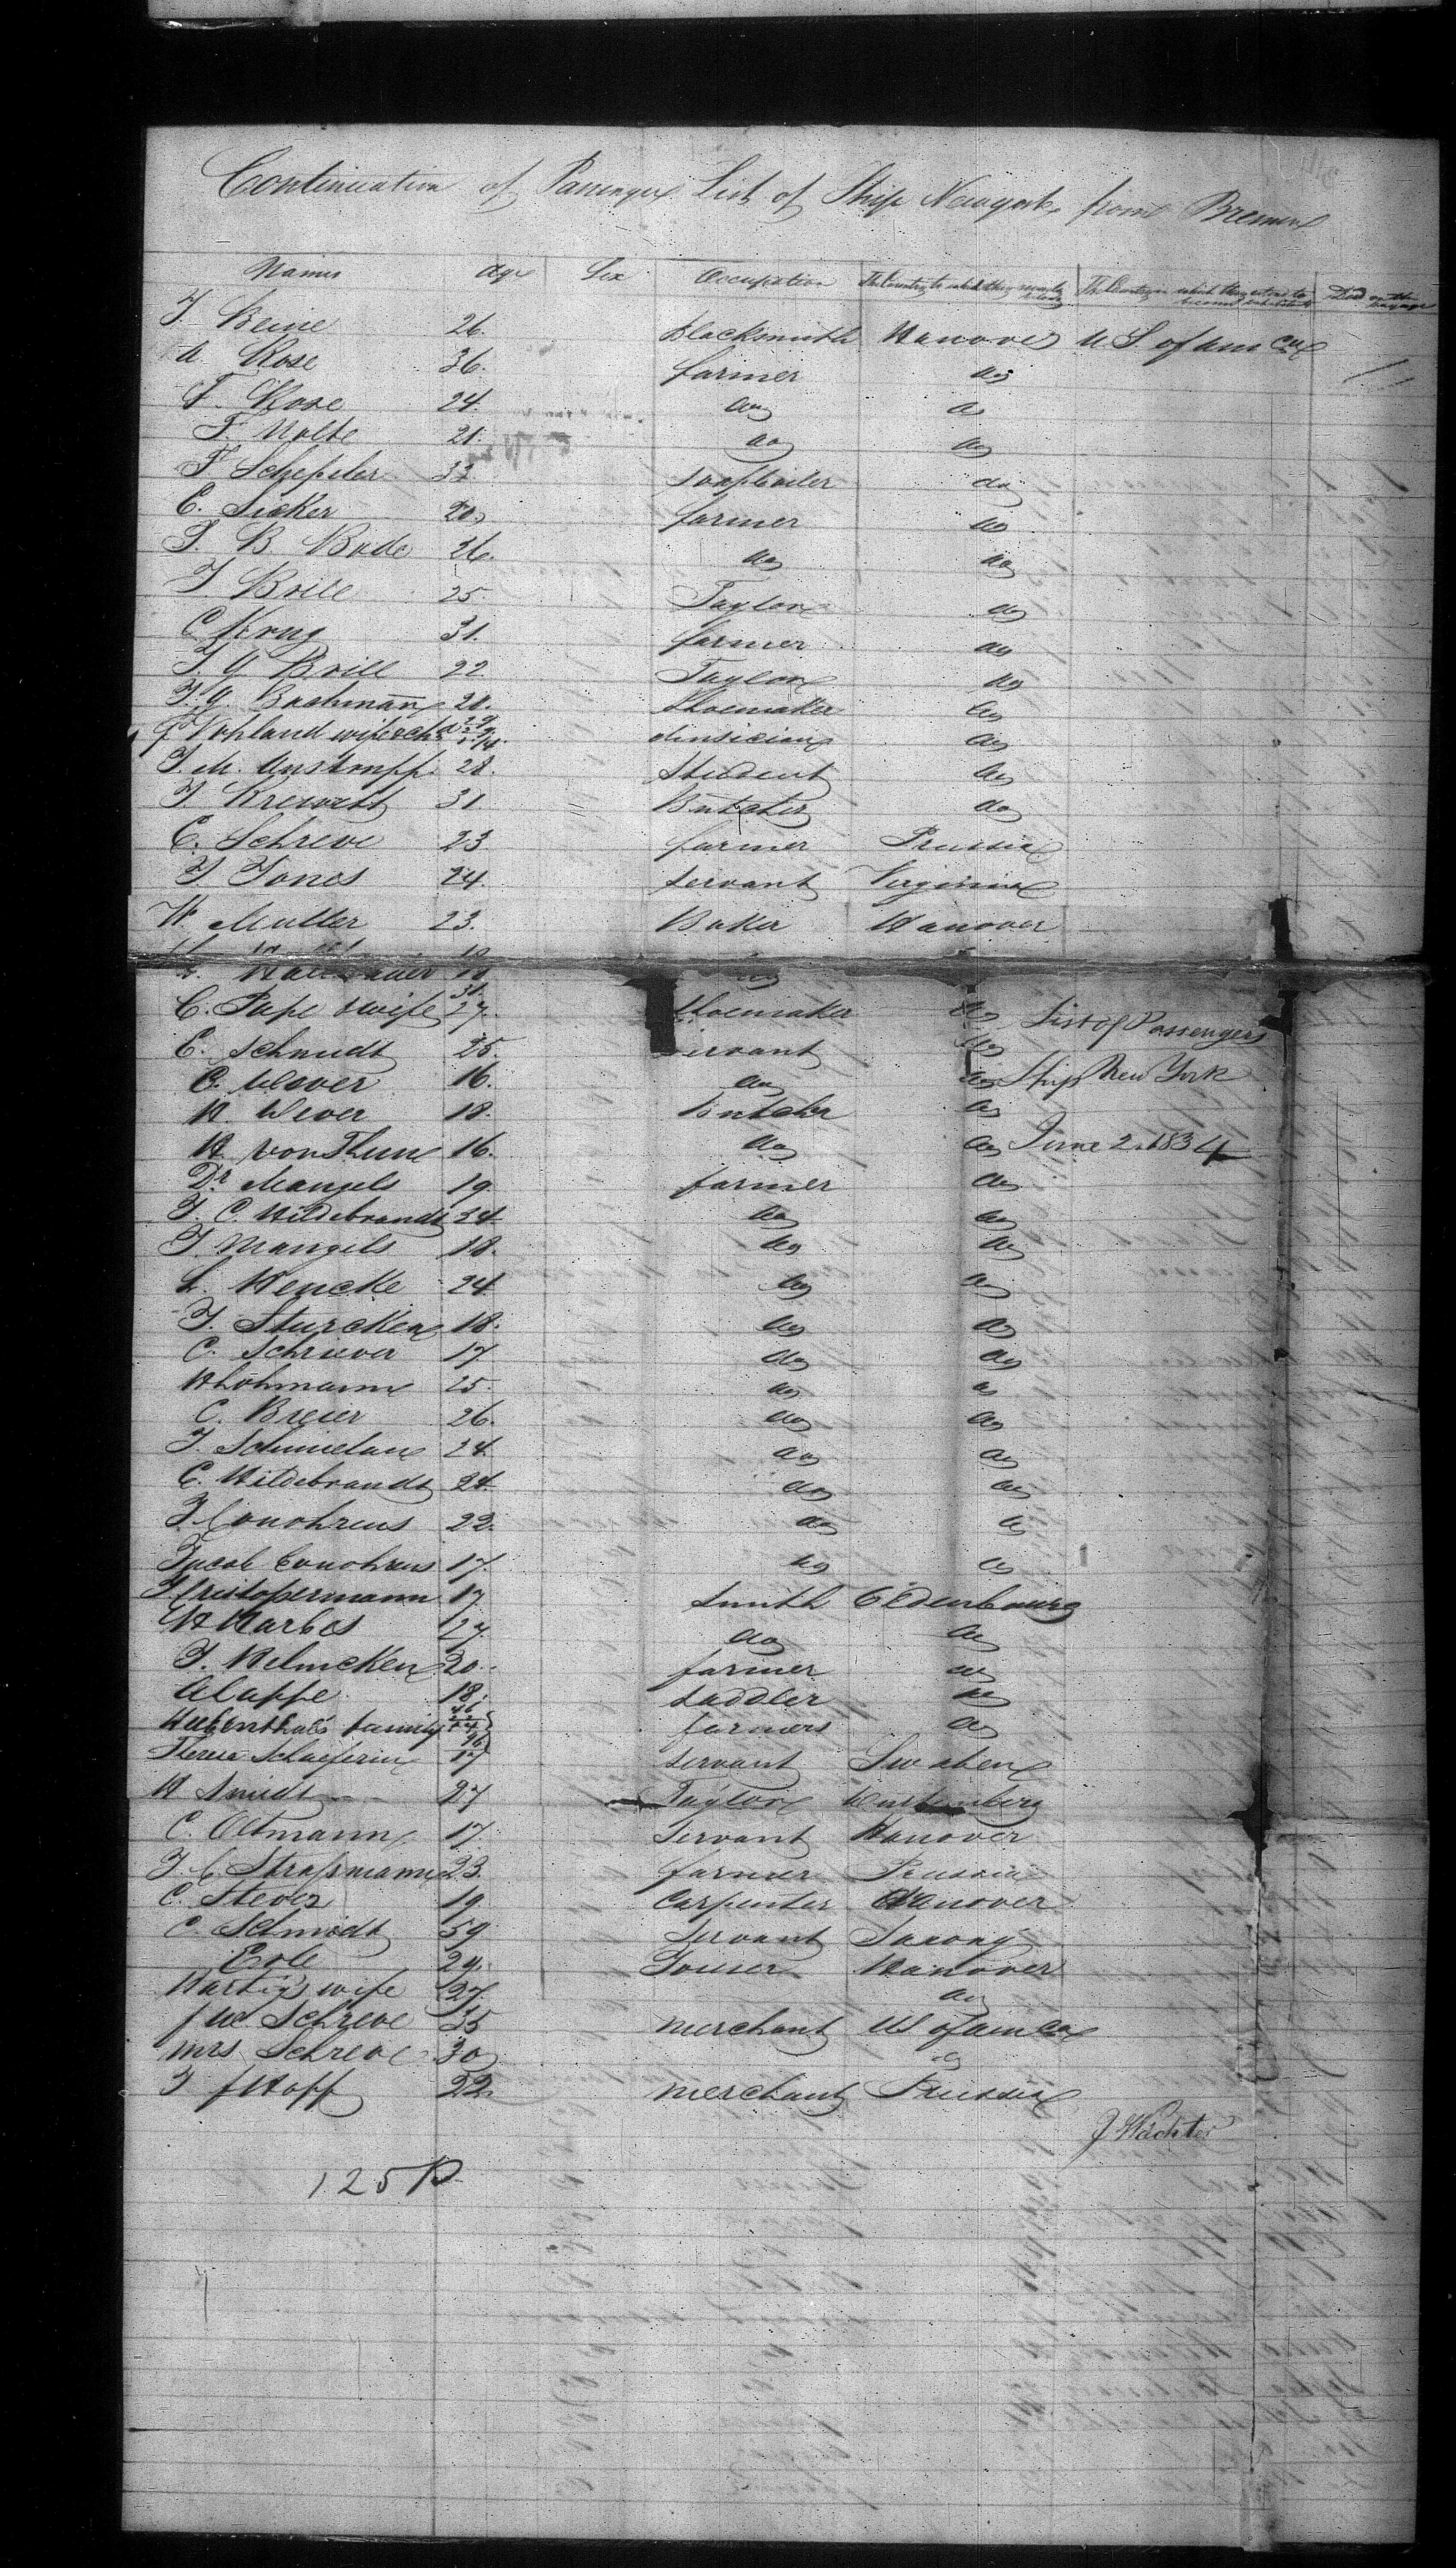 Continuation of Passenger List of Ship Newyork from Bremen
Names Age Sex Occupation The Country to which they severally belong The Country in which they intend to become inhabitants Died on the voyage
J. Beine 26. blacksmith Hanover U S. of am ca
A Rose 36. farmer do
F. Rose 24. do do
F. Nolte 21. do do
F. Schepeler 33 soapboiler do
C. Sieker 20 farmer do
J. B. Bode 26. do do
J Brill 25 Taylor do
C Krug 31. farmer do
J. G Brill 22 Taylor do
J. G. Bachmann 28. Shoemaker do
Vohland wife & ch do
J. M. 28. Student do
J Krewett 31 Butcher do
C. Schreve 23 farmer Prussia
J Jones 24. servant Virginia
W. Muller 23. Baker Hanover
18 do
C. Pape & wife 31. 27. Shoemaker do List of Passengers
E. Schmidt 25. servant do
C. Wever 16. do do Ship New York
H. Wever 18. Butcher do
H. von Thun 16. do do June 2. 1834
Dr Mangels 19 farmer do
J. C. Hildebrandt 24 do do
J. Mangels 18. do do
L. Hencke 24 do do
J. Sturcken 18. do do
C. Schriever 17 do do
H Lohmann 25. do do
C. Breier 26. do do
J. 24 do do
C. Hildebrandt 24 do do
J. Conohrens 22. do do
Jacob Conohrens 17. do do
17 smith Oldenbourg
H Harbes 27. do do
J. Helmcken 20. farmer do
A Cappe 18. saddler do
Hubenthals family farmers do
Theresa Schaeferin 17 servant Swaben
H Smidt 27 Taylor Wurtemberg
C. Oltmann 17. Servant Hanover
J C Strassmann 23. farmer Prussia
C. Stever 19 carpenter Hanover
C. Schmidt 59 servant Saxony
Erle 29. Hanover
Hartigs wife 27. do
J W Schreve 35 merchant US of am ca
mrs Schreve 30 do
J J Hopf 22. merchant Prussia
J Wächter
125 P